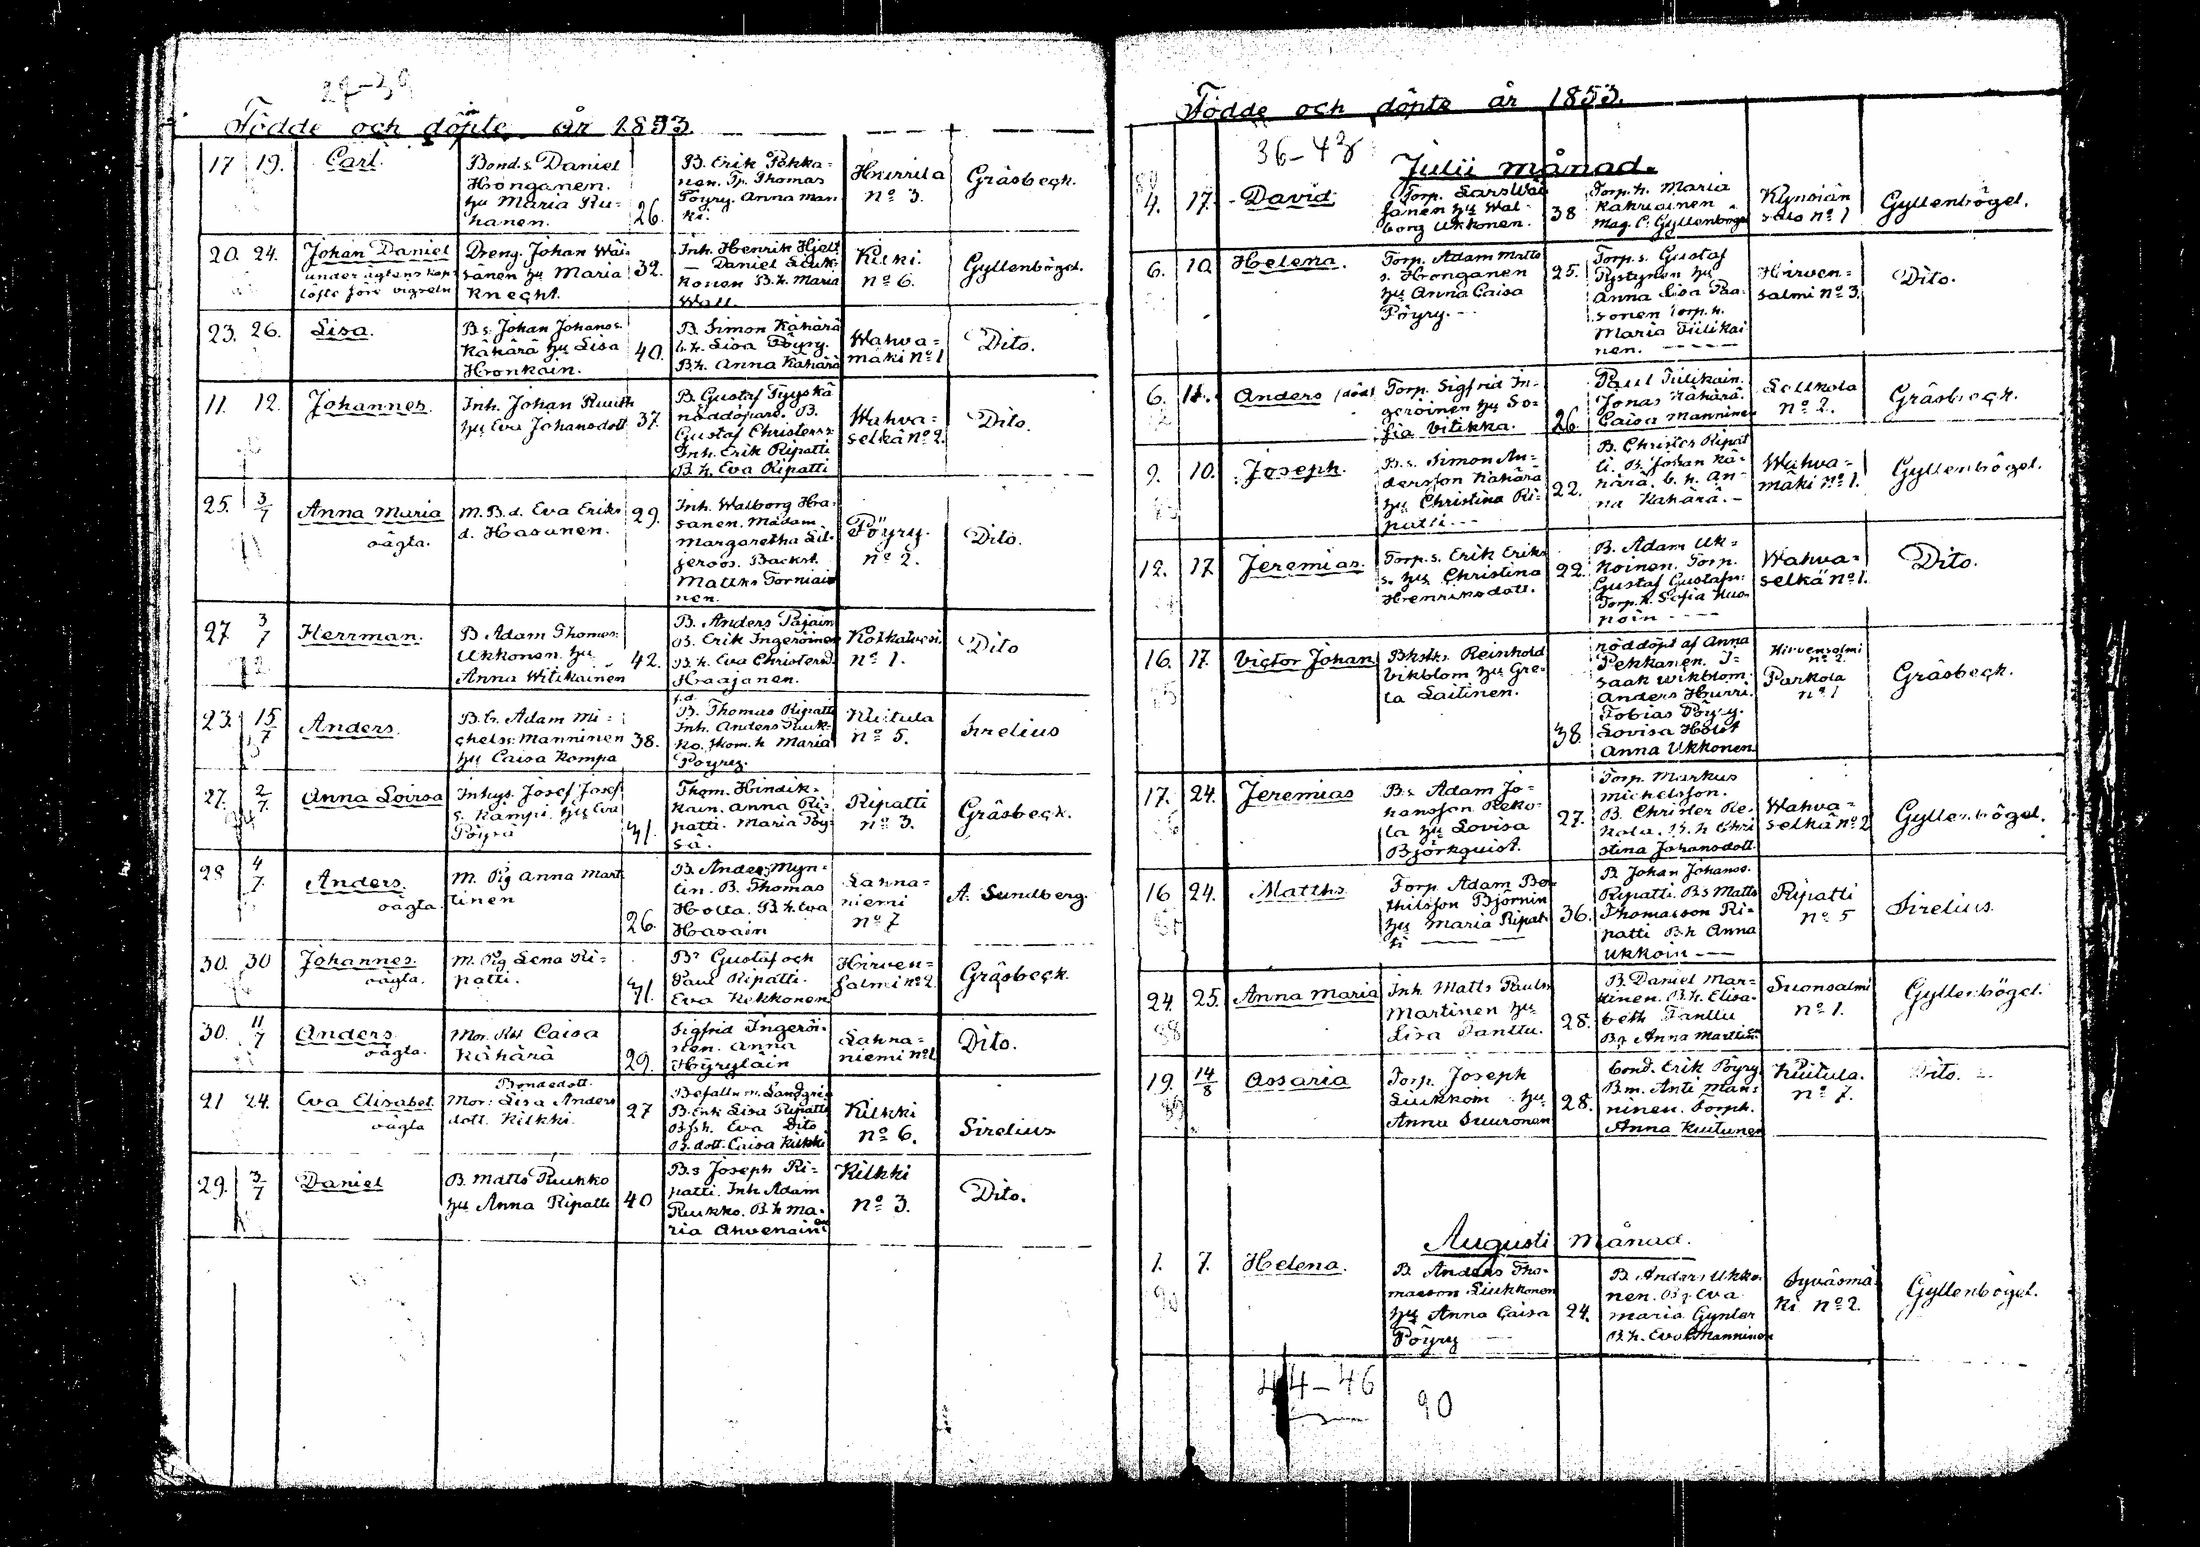 Födde och döpte år 1853.
17 19. Carl. Bond.s. Daniel
Honganen.
hu Maria Ru-
hanen. 26. B. Erik Pekka-
nen. Tp. Thomas
Pöyry. Anna Man-
ki. Hurrila
nº 3. Gråsbeck.
20. 24. Johan Daniel
under ägtenskaps
löfte före vigseln Dreng. Johan Wäi-
sänen hu Maria
Knecht. 32. Inh. Henrik Hjelt
Daniel Liuk-
konen B.h. Maria
Wall Kilki.
nº 6. Gyllenbögel.
23. 26. Lisa. B.s. Johan Johans.
Kähärä hu Lisa
Hronkain. 40. B. Simon Kähärä
b.h. Lisa Pöyry.
B.h. Anna Kähärä Wahva-
mäki Nº 1 Dito.
11. 12. Johannes. Inh. Johan Ruuth
hu Eva Johansdott 37. B. Gustaf Tyyskä
nöddöpare. B.
Gustaf Christerss.
Inh. Erik Ripatti
B.h. Eva Ripatti Wahva-
selkä nº 2. Dito.
25. 3/7 Anna Maria
oägta. M. B.d. Eva Eriks
d. Hasanen. 29. Inh. Walborg Ha-
sanen. Madam
Margaretha Lil-
jeroos. Backst.
Matths Torniai-
nen. Pöyry.
nº 2. Dito.
27 3/7 Herrman. B Adam Thomas.
Ukkonen. hu
Anna Witikainen 42. B. Anders Pajain
B. Erik Ingeröinen
B.h. Eva Christersd.
Haajanen. Kotkatvesi
nº 1. Dito
23. 15/7 Anders. B.br. Adam Mi-
chelss. Manninen
hu Caisa Kompa 38. B. Thomas Ripatti
Inh. Anders Ruuk-
ko. Skom.h Maria
Pöyry. Kuitula
nº 5. Sirelius
27. 2/7. Anna Lovisa Inhys. Josef Josef
s. Kämpi. hu Eva
Pöyrä 31. Thom. Hindik-
kain. Anna Ri-
patti. Maria Pöy-
sä. Ripatti
nº 3. Gråsbeck.
28 4/7. Anders.
oägta. M. Pig Anna Mart
tinen 26. B. Anders Myn-
tin. B. Thomas
Holla. B.h. Eva
Hasain Lahna-
niemi
nº 7 A. Sundberg.
30. 30 Johannes.
oägta. M. Pig Lena Ri-
patti. 31. Br Gustaf och
Paul Ripatti.
Eva Kekkonen. Hirven-
salmi nº 2. Gråsbeck.
30. 11/7 Anders
oägta. Mor. Caisa
Kähärä 29. Sigfrid Ingeröi-
nen. Anna
Hyryläin Lahna-
niemi nº 1. Dito.
21 24. Eva Elisabet.
oägta Bondedott.
Mor: Lisa Anders
dott. Kilkki. 27 Befalln.m. Landgren
B.Enk Lisa Ripatti
B.s.h. Eva Dito
B.dott. Caisa Kilkki Kilkki
nº 6. Sirelius
29. 3/7 Daniel B. Matts Ruukko
hu Anna Ripatti 40 B.s Joseph Ri-
patti. Inh Adam
Ruukko. B.h Ma-
ria Ahvenainen Kilkki
nº 3. Dito.
Födde och döpte år 1853.
36-43
Julii månad.
4. 17. David. Torp. Lars Wäi
sänen hu Wal-
borg Ukkonen. 38 Torp.h. Maria
Kahriainen
Mag. C. Gyllenbögel Kynsiän
salo nº 1 Gyllenbögel.
6. 10. Helena. Torp. Adam Matts
s. Honganen
hu Anna Caisa
Pöyry. 25. Torp.s. Gustaf
Pystynen hu
Anna Lisa Paa-
sonen Torp.h.
Maria Tiilikai
nen. Hirven-
salmi nº 3. Dito.
6. 11. Anders Torp. Sigfrid In-
geröinen hu So-
fia Vitikka. 26 Paul Tiilikain.
Jonas Kähärä.
Caisa Manninen Leskola
nº 2. Gråsbeck.
9. 10. Joseph. B.s. Simon An-
dersson Kähärä
hu Christina Ri-
patti. 22. B. Christer Ripat
ti. B. Johan Kä-
härä. b.h. An-
na Kähärä. Wahva-
mäki nº 1. Gyllenbögel.
12. 17 Jeremias. Torp.s. Erik Eriks
s. hu Christina
Henriksdott. 22. B. Adam Uk-
koinen. Torp.
Gustaf Gustafs.
Torp.h. Sofia Kuo-
noin Wahva-
selkä nº 1. Dito.
16. 17. Victor Johan Reinhold
Vikblom hu Gre-
ta Laitinen. 38. nöddöpt af Anna
Pekkanen. I-
saak Wikblom.
Anders Hurri.
Tobias Pöyry.
Lovisa Holst
Anna Ukkonen Hirvensalmi
nº 2.
Parkola
nº 1 Gråsbeck.
17. 24. Jeremias B.s Adam Jo-
hansson Reko-
la hu Lovisa
Björkquist. 27. Torp. Markus
Michelsson.
B. Christer Re-
kola. B.h Chri
stina Johansdott. Wahva-
selkä nº 2 Gyllenbögel.
16 24. Matths Torp. Adam Bo-
thilsson Björnin
hu Maria Ripat
ti 36. B Johan Johanss.
Ripatti. B.s Matts
Thomasson Ri-
patti B.h Anna
Ukkoin Ripatti
nº 5 Sirelius.
24. 25. Anna Maria Inh. Matts Pauls
Martinen hu
Lisa Tanttu. 28. B. Daniel Mar-
tinen. B.h. Elisa-
beth Tanttu
Anna Marttinen Suonsalmi
nº 1. Gyllenbögel.
19. 14/8 Assaria Torp. Joseph
Liukkoin hu
Anna Suuronen 28. bond. Erik Pöyry
B.m. Anti Man-
ninen. Torph.
Anna Kuitunen Kuitula.
nº 7. Dito.
Augusti månad.
1. 7. Helena. B. Anders Tho-
masson Liukkonen
hu Anna Caisa
Pöyry 24. B. Anders Ukko-
nen. Eva
Maria Gynter
B.h. Eva Manninen Syväsmä-
ki nº 2. Gyllenbögel.
44-46
90